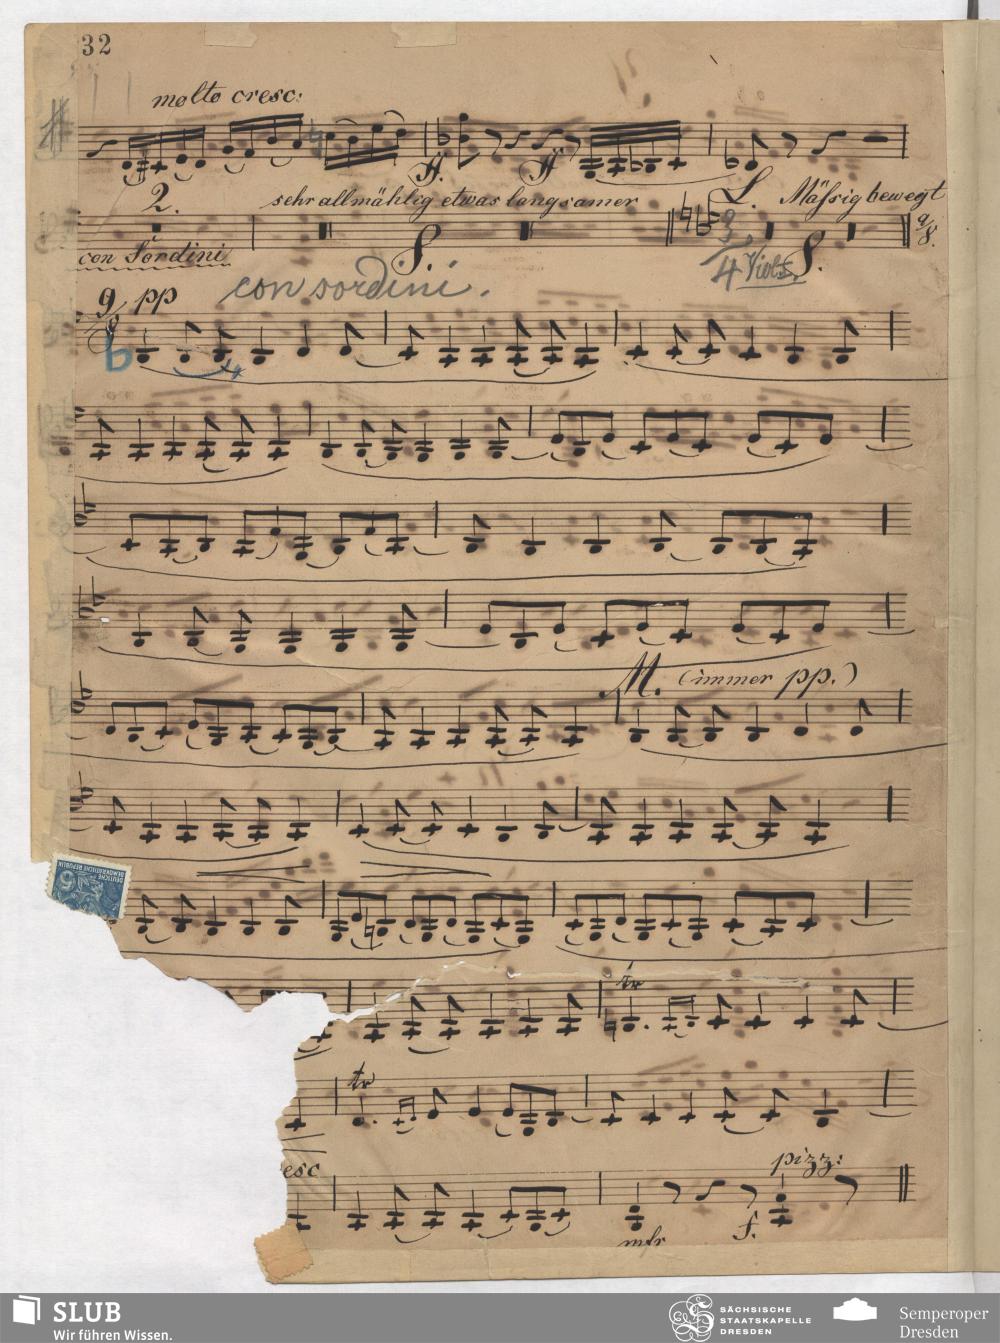 32
molto cresc:
ff. ff
2. sehr allmählig etwas langsamer L. Mässig bewegt
con Sordini S. 3/4 Viols. S. 9/8.
9/8 pp con sordini.
b
M. (immer pp.)
DEUTSCHE DEMOKRATISCHE REPUBLIK
tr
tr
esc pizz:
f.
SLUB
Wir führen Wissen.
SÄCHSISCHE
STAATSKAPELLE
DRESDEN
Semperoper
Dresden